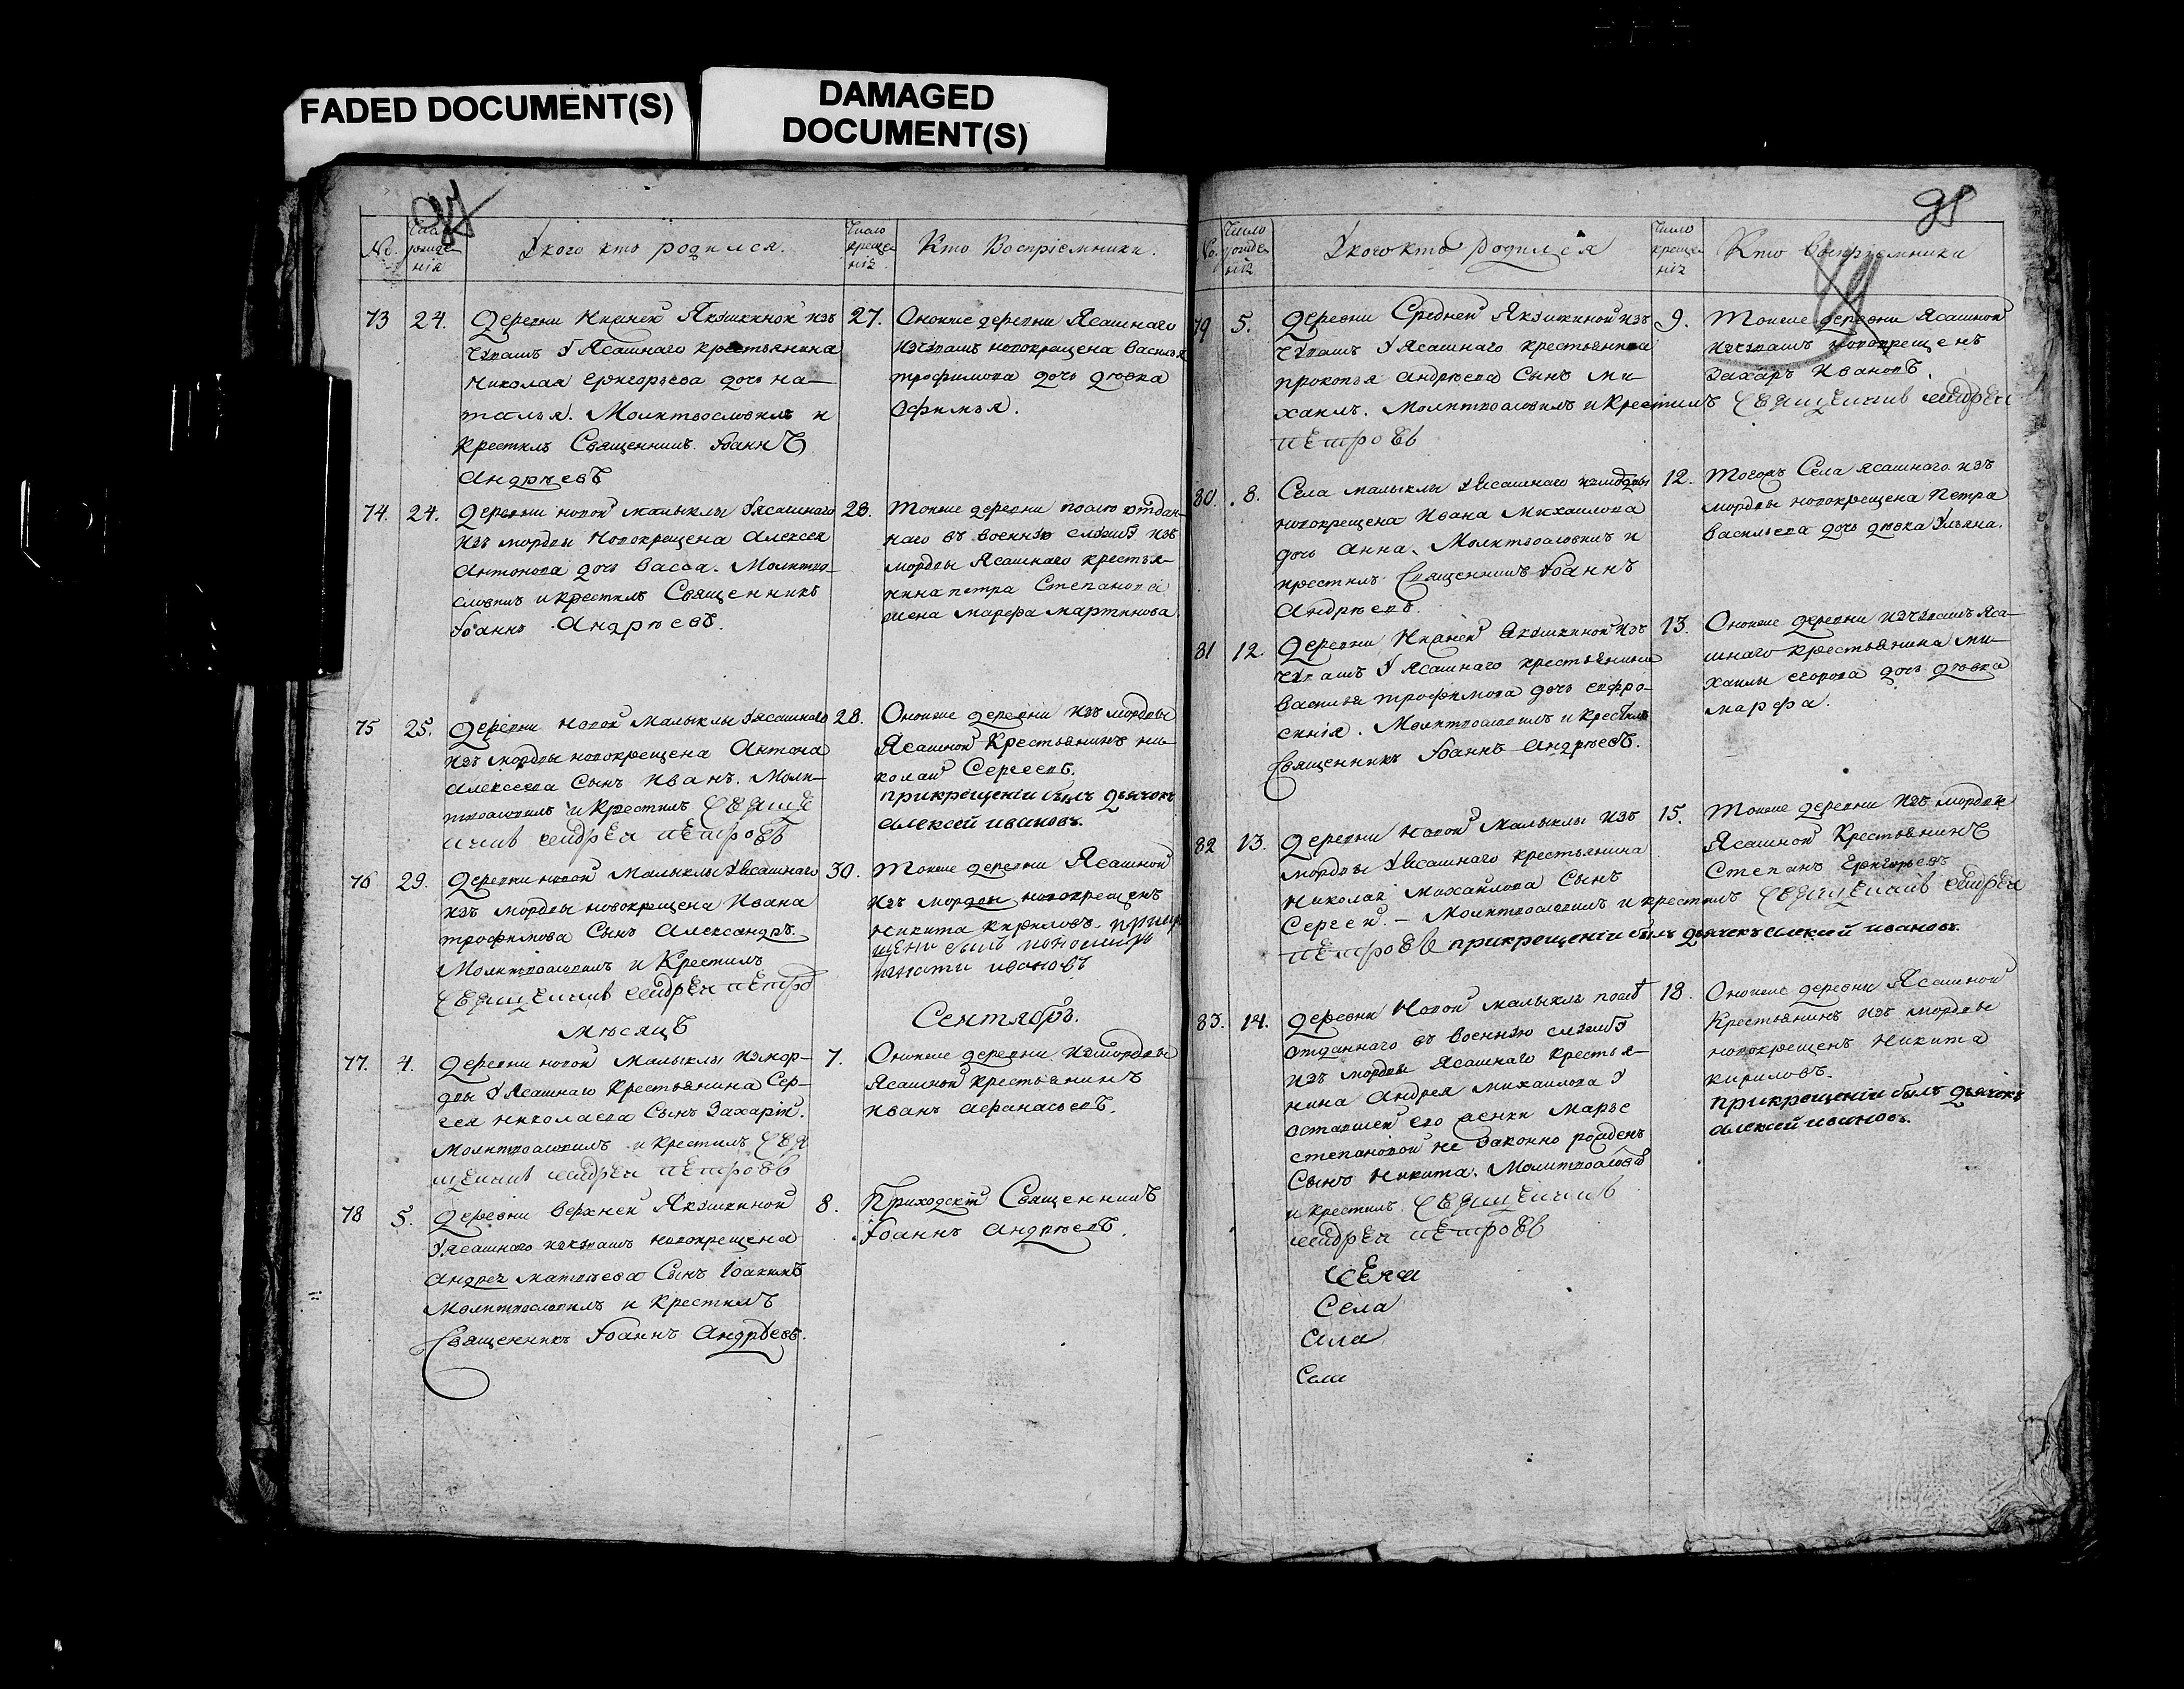 FADED DOCUMENT(S)
DAMAGED
DOCUMENT(S)
№.
Число рожде-
нія
У кого кто родился.
Число
креще-
нія
Кто Воспріемники.
73
24.
Деревни Нижней Якушкиной изъ
Чувашъ у Ясашнаго крестьянина
Николая Григорьева дочь На-
талья. Молитвословилъ и
Крестилъ Священникъ Іоаннъ
Андрѣевъ
27.
Оноиже деревни Ясашнаго
изчувашъ новокрещена Василья
трофимова дочь дѣвка
Офимья.
74.
24.
Деревни новой малыклы уясашнаго
изъ мордвы Новокрещена Алексея
Антонова дочь васса. Молитво-
словилъ и крестилъ Священникъ
Іоаннъ Андрѣевъ.
28.
Тоиже деревни отдан-
наго въ военную службу изъ
мордвы Ясашнаго крестья-
нина петра Степанова
жена марфа мартинова
75
25.
Деревни новой Малыклы уясашнаго
изъ мордвы новокрещена Антона
Алексеева Сынъ Иванъ. Моли-
твословилъ и Крестилъ Свяще
нникъ Андрей Петровъ
28.
Оноиже деревни изъ мордвы
Ясашной Крестьянинъ ни-
колай Сергеевъ.
прикрещеніи былъ дьячокъ
алексей ивановъ.
76
29.
Деревни новой Малыклы уясашнаго
изъ мордвы новокрещена Ивана
трофимова Сынъ Александръ.
Молитвословилъ и Крестилъ
Священникъ Андрей Петров
30.
Тоиже деревни Ясашной
изъ мордвы новокрещенъ
Никита Кириловъ. прикре
щени былъ пономарь
игнати ивановъ
Мѣсяцъ
Сентябрь.
77.
4.
Деревни новой Малыклы измор-
двы у Ясашнаго Крестьянина Сер-
гея николаева Сынъ Захарій.
Молитвословилъ и крестилъ Свя
щенникъ Андрей Петровъ
7.
Оноиже деревни измордвы
Ясашной крестьянинъ
иванъ афанасьевъ.
78
5.
Деревни верхней Якушкиной
уясашнаго изчувашъ новокрещена
андрея матвѣева Сынъ Іоакимъ
Молитвословилъ и Крестилъ
Священникъ Іоаннъ Андрѣевъ.
8.
Приходскій Священникъ
Іоаннъ андрѣевъ.
95
№.
Число
рожде-
нія
У кого кто родился
Число
креще-
нія
Кто Воспріемники
79
5.
Деревни Средней Якушкиной изъ
чувашъ у Ясашнаго крестьянина
прокопья андрѣева Сынъ ми-
хаилъ. молитвословилъ и Крестилъ Священникъ Андрей
Петровъ
9.
Тоиже деревни Ясашной
изчувашъ новокрещенъ
Захаръ Ивановъ.
80.
8.
Села малыклы уясашнаго измордвы
новокрещена Ивана Михаилова
дочь анна. Молитвословилъ и
крестилъ Священникъ Іоаннъ
Андрѣевъ.
12.
Тогожъ Села ясашнаго изъ
мордвы новокрещена Петра
васильева дочь дѣвка Ульяна.
81
12.
Деревни Нижней Якушкиной изъ
чувашъ у Ясашнаго крестьянина
василья трофимова дочь евфро-
синія. Молитвословилъ и крестилъ
Священникъ Іоаннъ Андрѣевъ.
13.
Оноиже деревни изчувашъ Яса-
шнаго крестьянина ми-
хаилы егорова дочь дѣвка
марфа.
82
13.
Деревни новой Малыклы изъ
мордвы уясашнаго крестьянина
Николая Михаилова Сынъ
Сергей. – Молитвословилъ и крестилъ Священникъ Андрей
Петровъ прикрещеніи былъ дьячекъ алексей ивановъ.
15.
Тоиже деревни изъ мордвы
Ясашной Крестьянинъ
Степанъ Григорьевъ
83.
14.
Деревни Новой Малыклы
отданнаго въ военную службу
изъ мордвы Ясашнаго Крестья-
нина Андрея михаилова у
оставшей его женки Марьи
степановой не законно рожденъ
Сынъ Никита. Молитвословилъ
и крестилъ Священникъ
Андрей Петровъ
18.
Оноиже деревни Ясашной
Крестьянинъ изъ мордвы
новокрещенъ Никита
кириловъ.
прикрещеніи былъ дьячокъ
алексей ивановъ.
Села